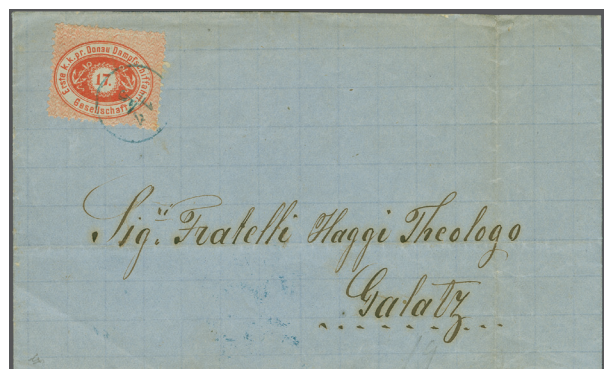 Erste k.k.pr. Donau Dampfschiffahrt
17.
Gesellschaft
Sigri Fratelli Haggi Theologo
Galatz
19